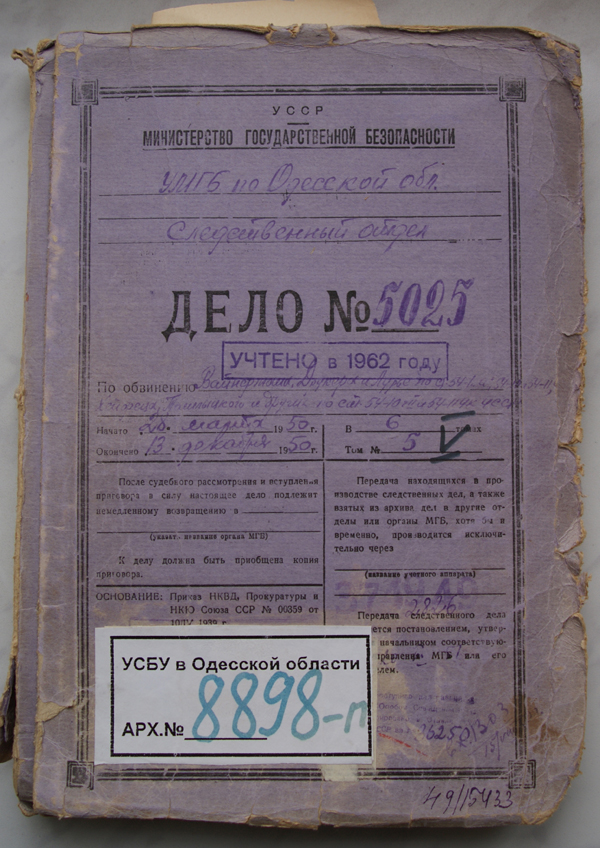 УССР
МИНИСТЕРСТВО ГОСУДАРСТВЕННОЙ БЕЗОПАСНОСТИ
УМГБ по Одесской обл.
Следственный отдел
ДЕЛО № 5025
УЧТЕНО в 1962 году
По обвинению
и других по ст.
Начато 20 марта 1950 г.
Окончено 13 декабря 1950 г.
В 6 томах
Том № 5 V
После судебного рассмотрения и вступления
приговора в силу настоящее дело подлежит
немедленному возвращению в
(указат. название органа МГБ)
К делу должна быть приобщена копия
приговора.
ОСНОВАНИЕ: Приказ НКВД, Прокуратуры и
НКЮ Союза ССР № 00359 от
1939 г.
Передача находящихся в про-
изводстве следственных дел, а также
взятых из архива дел в другие от-
делы или органы МГБ, хотя бы и
временно, производится исключи-
тельно через
(название учетного аппарата)
Передача следственного дела
ется постановлением, утвер-
начальником соответствую-
правления МГБ или его
лем.
УСБУ в Одесской области
АРХ.№ 8898-п
49/15433